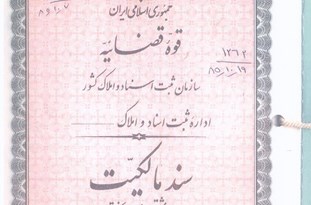 جمهوری اسلامی ایران
قوهٔ قضائیه
۱۲۶۲
۸۵/۱۰/۱۹
سازمان ثبت اسناد و املاک کشور
ادارهٔ ثبت اسناد و املاک
سند مالکیت